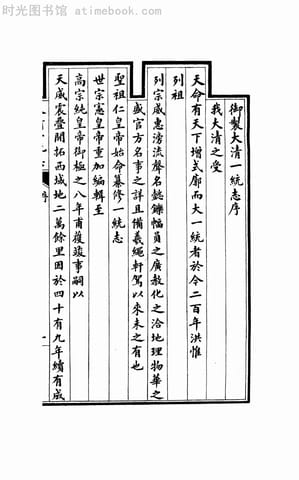 时光图书馆 atimebook.com
御製大清一統志序
我大清之受
天命有天下增式廓而大一統者於今二百年洪惟
列祖
列宗威惠滂流聲名懿鑠幅員之廣教化之洽地理物華之
盛官方名事之詳且備羲繩軒駕以來未之有也
聖祖仁皇帝始命纂修一統志
世宗憲皇帝重加編輯至
高宗純皇帝御極之八年甫獲竣事嗣以
天威震疊開拓西域地二萬餘里因於四十有九年續有成
序
一